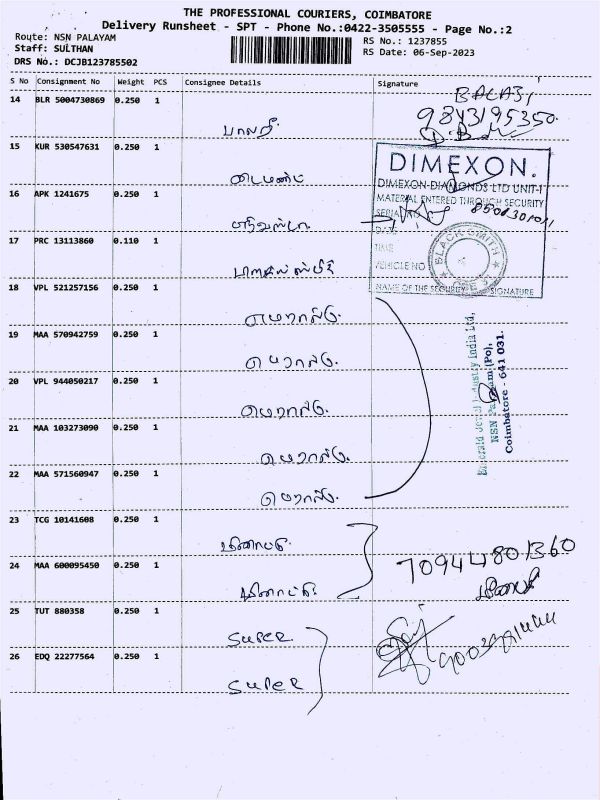 THE PROFESSIONAL COURIERS, COIMBATORE
Delivery Runsheet - SPT - Phone No.:0422-3505555 - Page No.:2
Route: NSN PALAYAM
RS No.: 1237855
Staff: SULTHAN
RS Date: 06-Sep-2023
DRS No.: DCJB123785502
S No Consignment No Weight PCS Consignee Details Signature
14 BLR 5004730869 0.250 1
BALAJI
9843195350
பாலாஜி
15 KUR 530547631 0.250 1
டைமண்ட்
DIMEXON.
DIMEXON DIAMONDS LTD UNIT-I
MATERIAL ENTERED THROUGH SECURITY
SERIAL NO
DATE
TIME
VEHICLE NO
NAME OF THE SECURITY SIGNATURE
BLACK SMITH
16 APK 1241675 0.250 1
17 PRC 13113860 0.110 1
18 VPL 521257156 0.250 1
எமரால்டு.
19 MAA 570942759 0.250 1
எமரால்டு.
20 VPL 944050217 0.250 1
எமரால்டு.
21 MAA 103273090 0.250 1
எமரால்டு.
22 MAA 571560947 0.250 1
எமரால்டு.
Emerald Jewel Industry India Ltd,
NSN Palayam (Po),
Coimbatore - 641 031.
23 TCG 10141608 0.250 1
24 MAA 600095450 0.250 1
70944801360
25 TUT 880358 0.250 1
SUPER
26 EDQ 22277564 0.250 1
SUPER